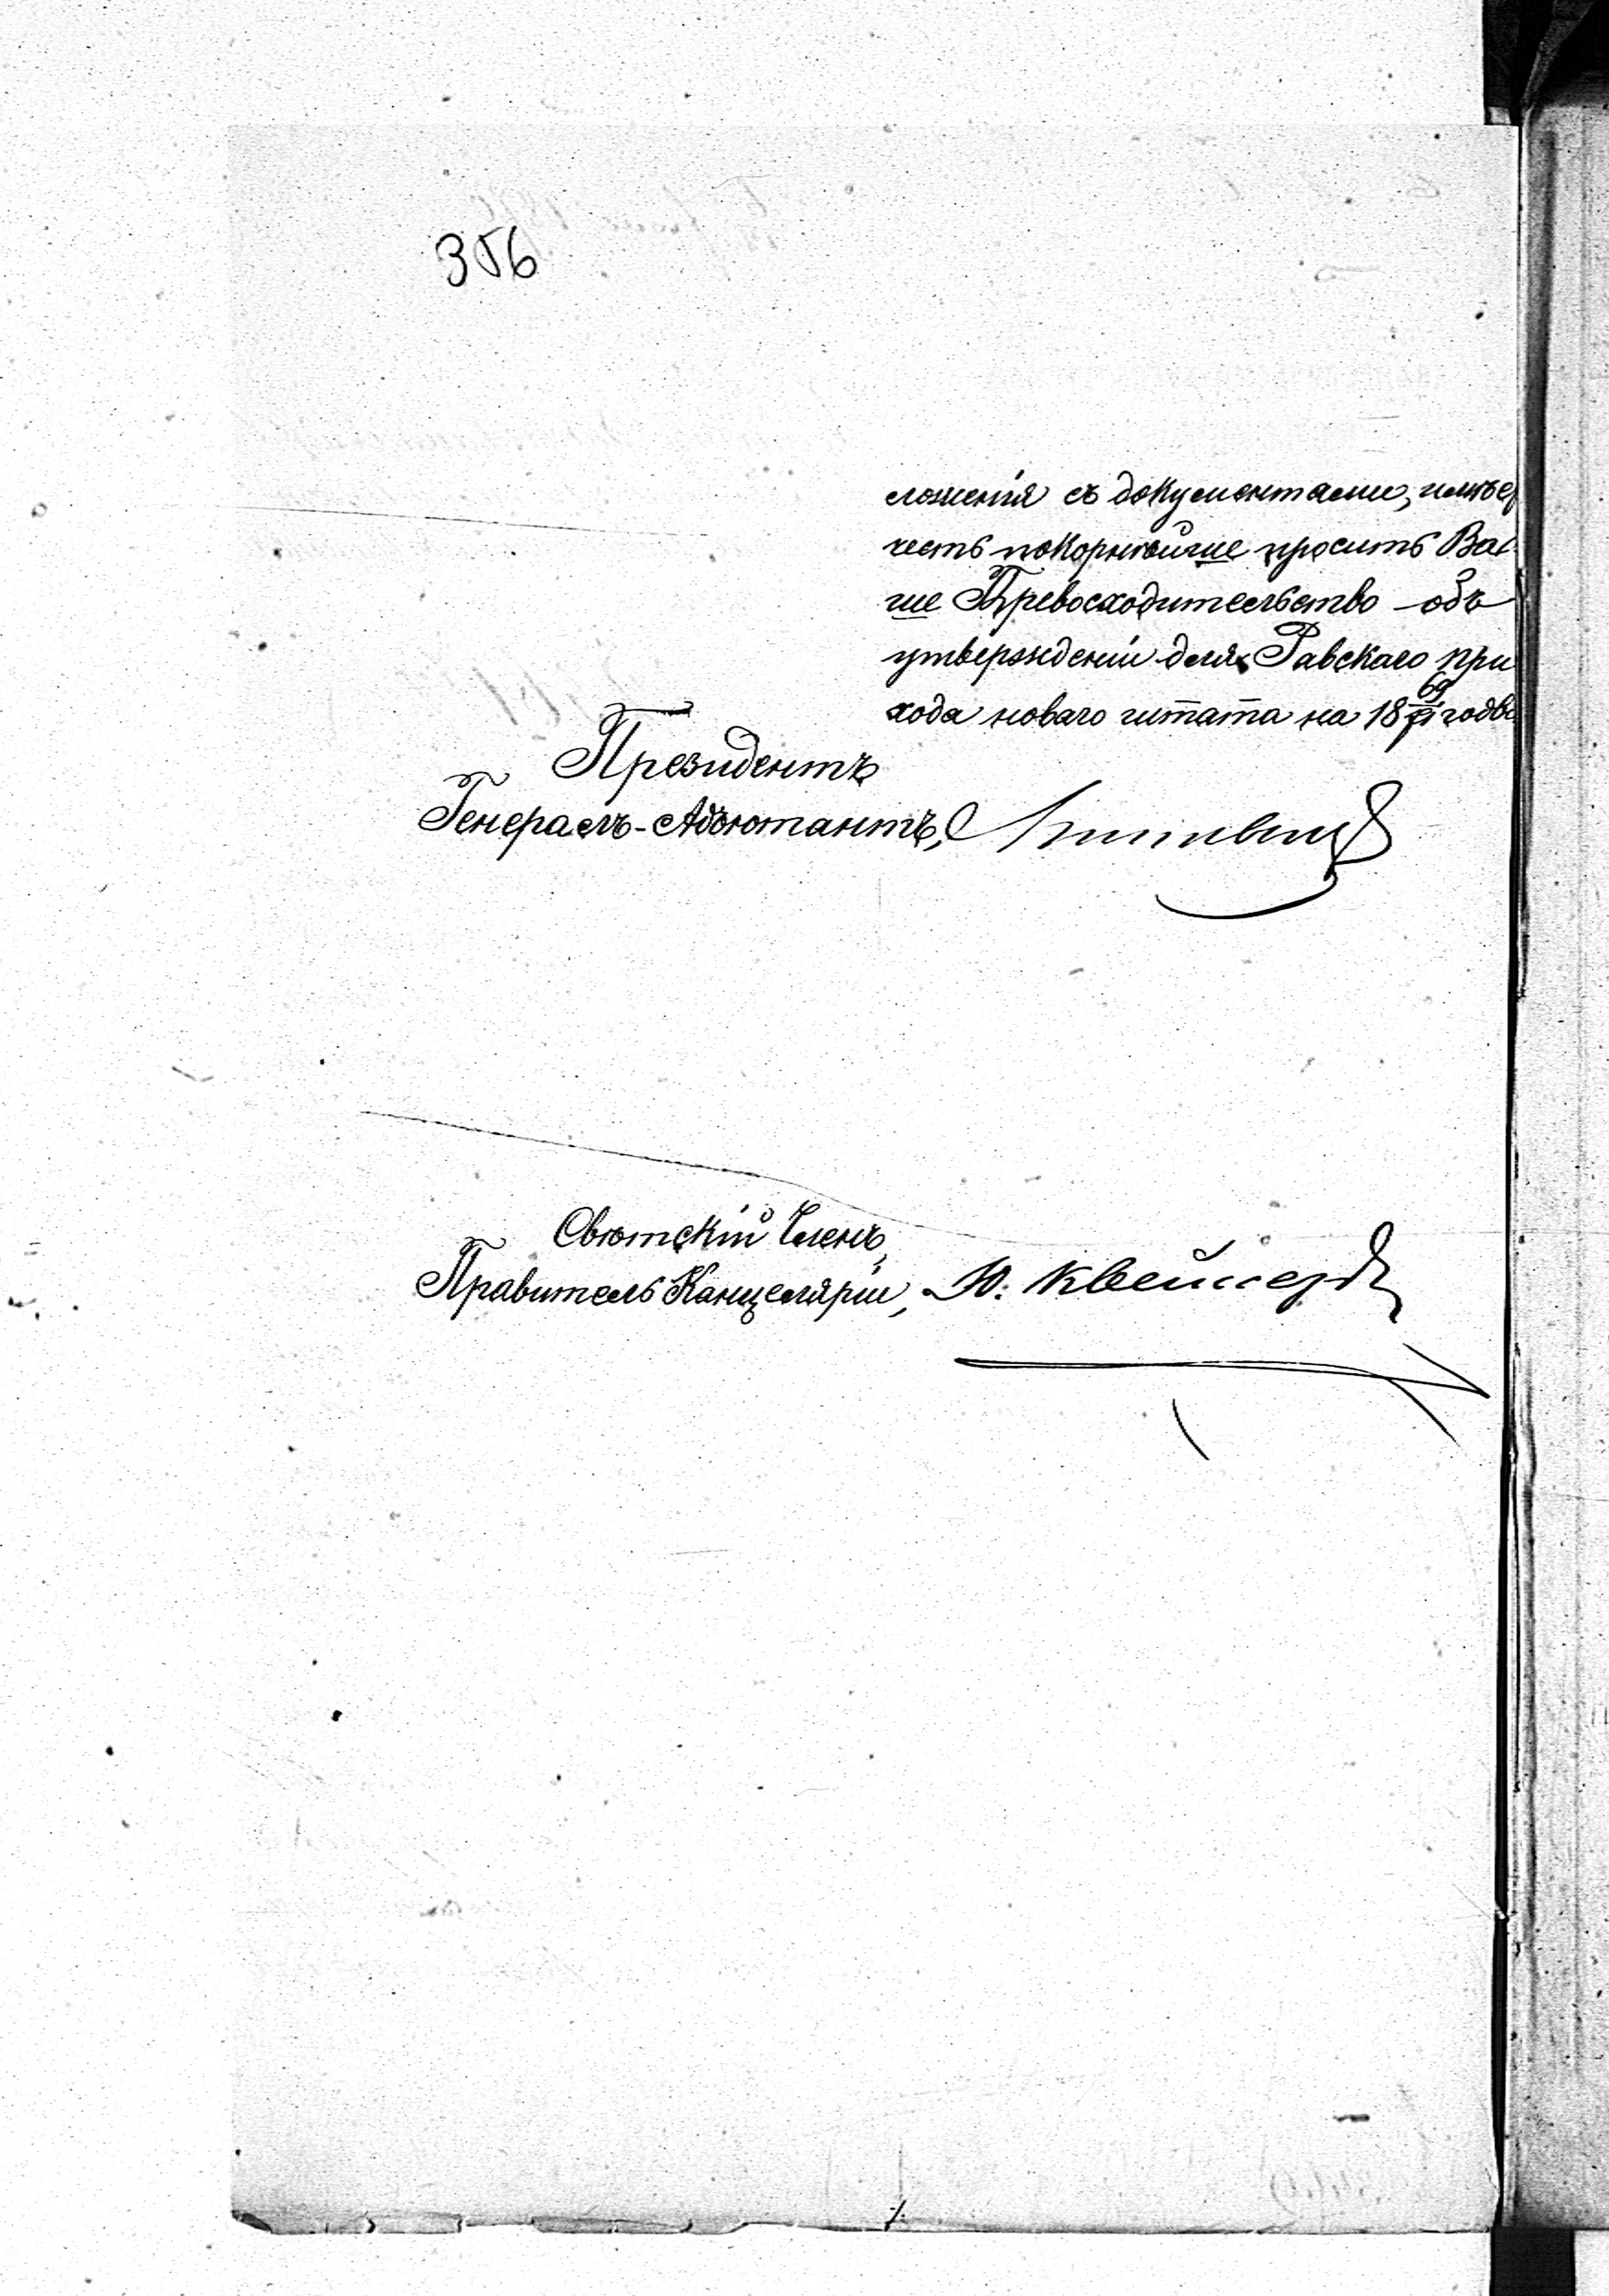 356
ложенiя съ документами, имѣе
честь покорнѣйше просить Ва-
ше Превосходительство объ
утвержденiи для Равскаго при
хода новаго штата на 18 69/71 годъ
Президентъ
Генералъ-Адъютантъ,
Свѣтскiй Членъ,
Правитель Канцелярiи, Ю.